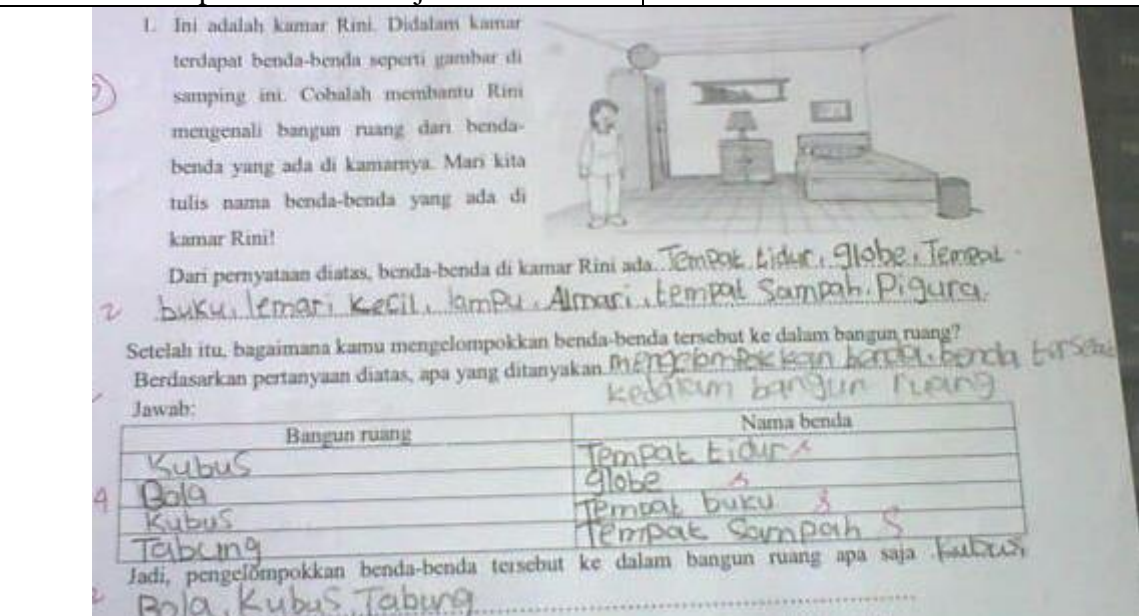 1. Ini adalah kamar Rini. Didalam kamar
terdapat benda-benda seperti gambar di
samping ini. Cobalah membantu Rini
mengenali bangun ruang dari benda-
benda yang ada di kamarnya. Mari kita
tulis nama benda-benda yang ada di
kamar Rini!
Dari pernyataan diatas, benda-benda di kamar Rini ada Tempat tidur, globe, Tempat
2 buku, lemari kecil, lampu, Almari, tempat Sampah, Pigura
Setelah itu, bagaimana kamu mengelompokkan benda-benda tersebut ke dalam bangun ruang?
Berdasarkan pertanyaan diatas, apa yang ditanyakan mengelompokkan benda-benda
kedalam bangun ruang
Jawab:
Bangun ruang Nama benda
Kubus Tempat tidur
4 Bola globe
Kubus Tempat buku
Tabung Tempat Sampah
Jadi, pengelompokkan benda-benda tersebut ke dalam bangun ruang apa saja kubus,
Bola, Kubus, Tabung